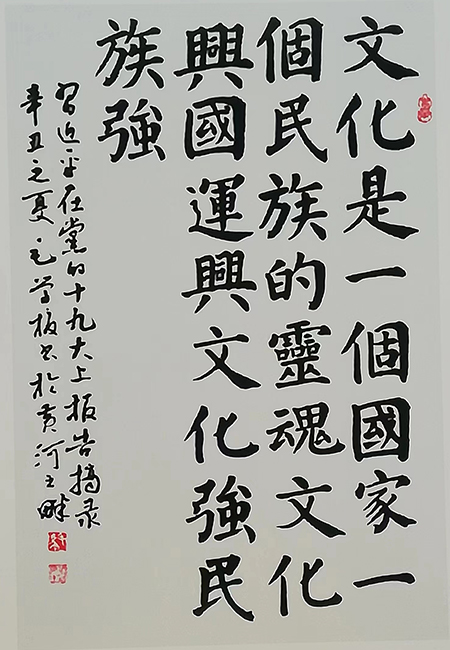 文化是一個國家一
個民族的靈魂文化
興國運興文化強民
族強
習近平在黨的十九大上报告摘录
辛丑之夏书於黄河之畔